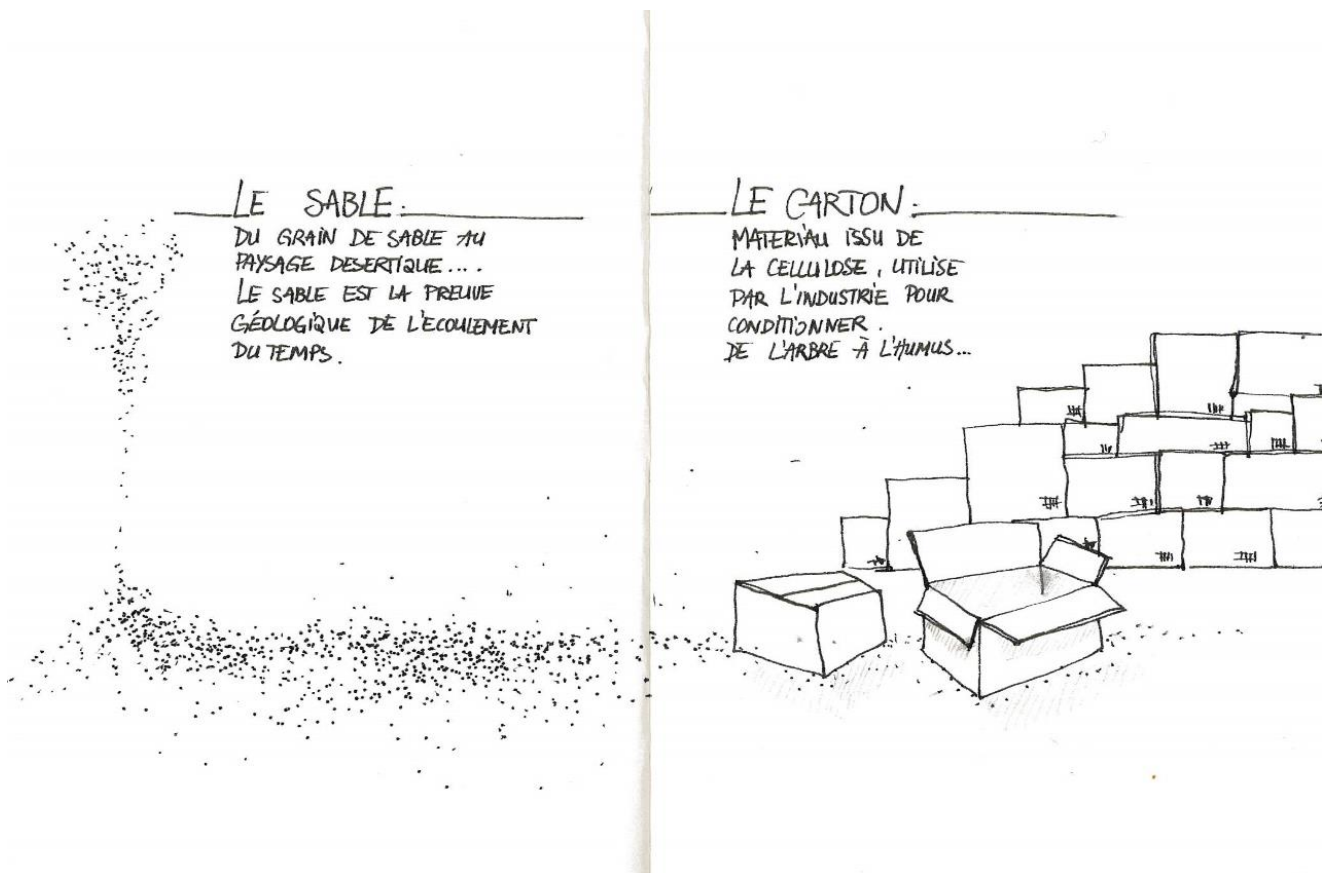 LE SABLE:
DU GRAIN DE SABLE AU
PAYSAGE DESERTIQUE....
LE SABLE EST LA PREUVE
GÉOLOGIQUE DE L'ECOULEMENT
DU TEMPS.
LE CARTON:
MATERIAU ISSU DE
LA CELLULOSE, UTILISE
PAR L'INDUSTRIE POUR
CONDITIONNER.
DE L'ARBRE À L'HUMUS...